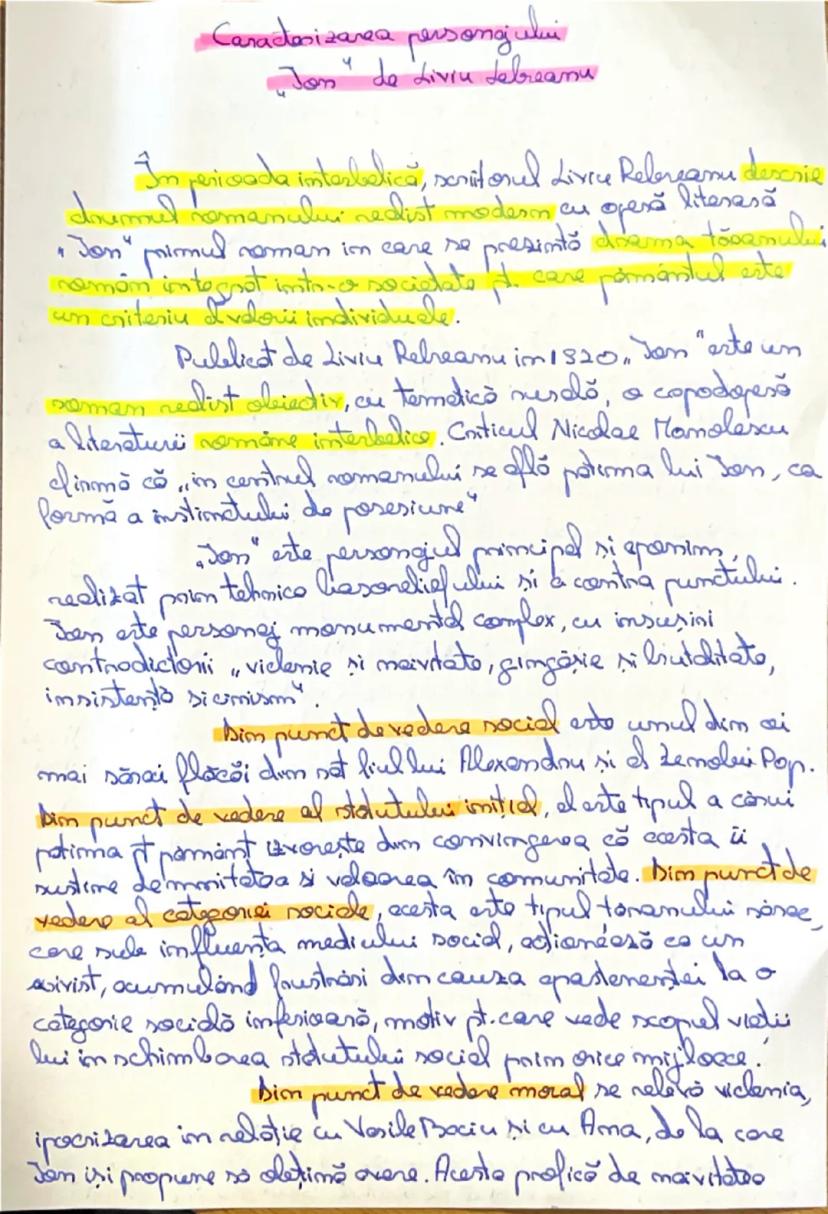 Caracterizarea personajului
„Ion" de Liviu Rebreanu
În perioada interbelică, scriitorul Liviu Rebreanu descrie
drumul romanului realist modern cu opera literară
„Ion" primul roman în care se prezintă drama țăranului
român integrat într-o societate pt. care pământul este
un criteriu al valorii individuale.
Publicat de Liviu Rebreanu in 1920 „Ion" este un
roman realist obiectiv, cu tematică rurală, o capodoperă
a literaturii române interbelice. Criticul Nicolae Manolescu
afirmă că „in centrul romanului se află patima lui Ion, ca
formă a instinctului de posesiune"
„Ion" este personajul principal si eponim,
realizat prin tehnica basoreliefului si a contra punctului.
Ion este personaj monumental complex, cu insusiri
contradictorii „viclenie si naivitate, gingășie si brutalitate,
insistență si cinism".
Din punct de vedere social este unul din cei
mai săraci flăcăi din sat fiul lui Alexandru si al Zenobiei Pop.
Din punct de vedere al statutului inițial, el este tipul a cărui
patima pt pământ izvorește din convingerea că acesta ii
sustine demnitatea si valoarea în comunitate. Din punct de
vedere al categoriei sociale, acesta este tipul taranului sărac,
care sub influenta mediului social, actionează ca un
arivist, acumulând frustrări din cauza apartenenței la o
categorie socială inferioară, motiv pt. care vede scopul vietii
lui in schimbarea statutului social prin orice mijloace.
Din punct de vedere moral se relevă viclenia,
ipocrizarea in relație cu Vasile Baciu si cu Ana, de la care
Ion isi propune să obțină avere. Acesta profică de naivitatea